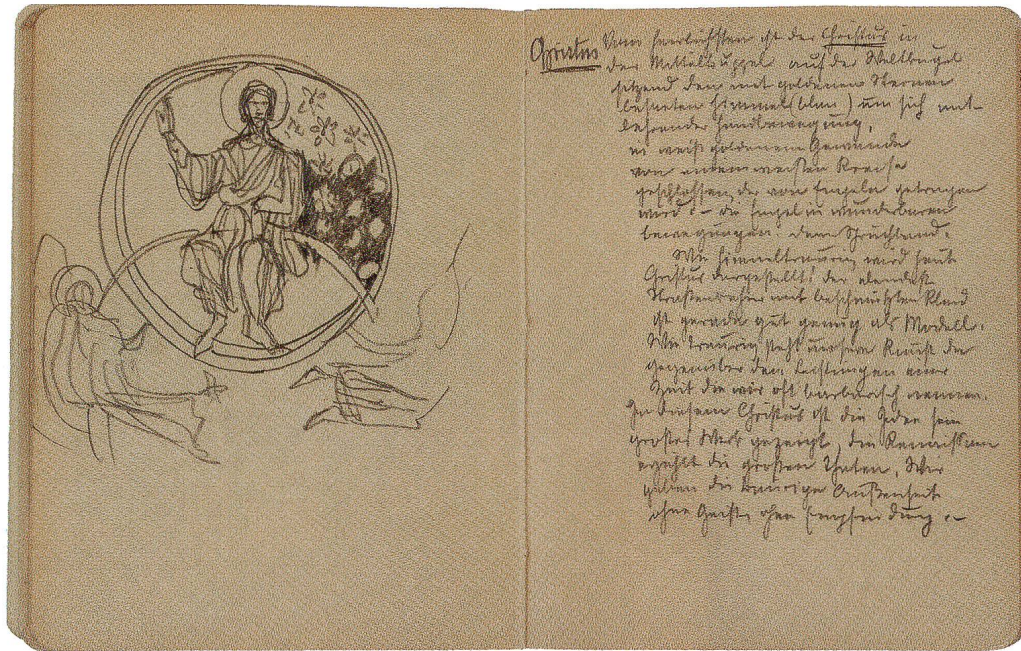 Christus Vom herrlichsten ist der Christus in
der Mittelkuppel auf der Weltkugel
sitzend den mit goldenen Sternen
besäeten Himmel (blau) um sich mit
lehrender Handbewegung,
in weiß goldenem Gewande
von einem weißen Kreise
geschlossen, der von Engeln getragen
wird – die Engel in wunderbaren
bewegungen. dem Spruchband.
Wie himmeltraurig wird heute
Christus dargestellt! der elendeste
mit beschmutzten Kleid
ist gerade gut genug als Modell.
Wie traurig steht unsere Kunst da
gegenüber den Leistungen einer
Zeit die wir oft barbarisch nennen.
In diesem Christus ist die Idee sein
großes Werk gezeigt, die Renaissance
erzählt die großen Thaten, Wir
geben die traurige Außenseite
ohne Geist, ohne Empfindung –